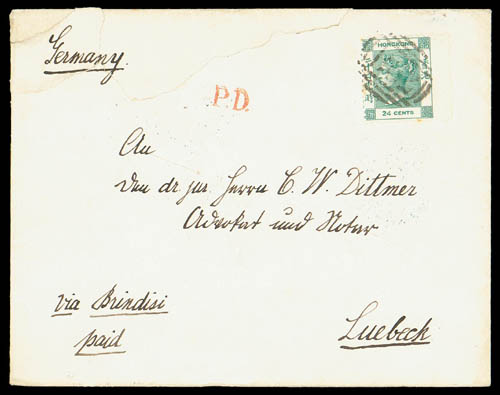 Germany.
HONG KONG
24 CENTS
P.D.
An
den dr jur. Herrn C. W. Dittmer
Advokat und Notar
via Brindisi
paid
Luebeck